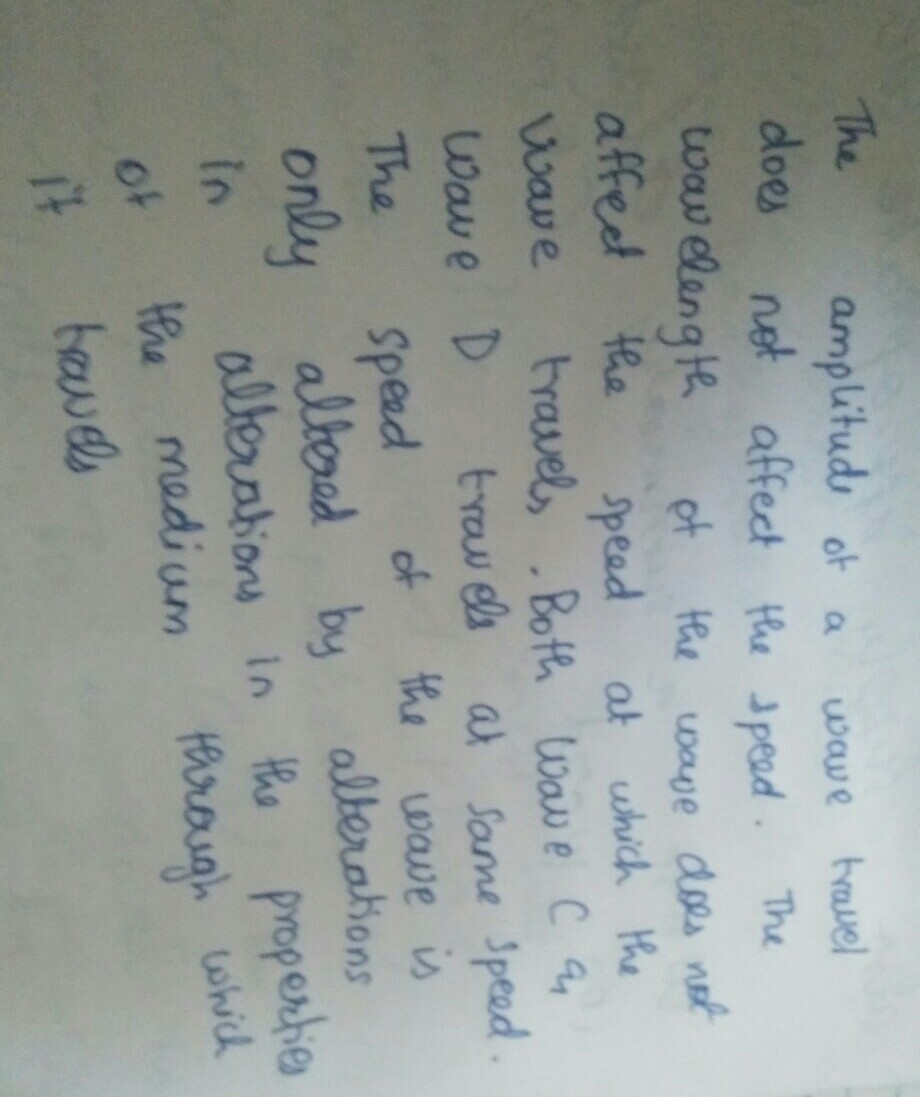 The amplitude of a wave travel
does not affect the speed. The
wavelength of the wave does not
affect the speed at which the
wave travels. Both wave C &
wave D travels at same speed.
The speed of the wave is
only altered by alterations
in alterations in the properties
of the medium through which
it travels